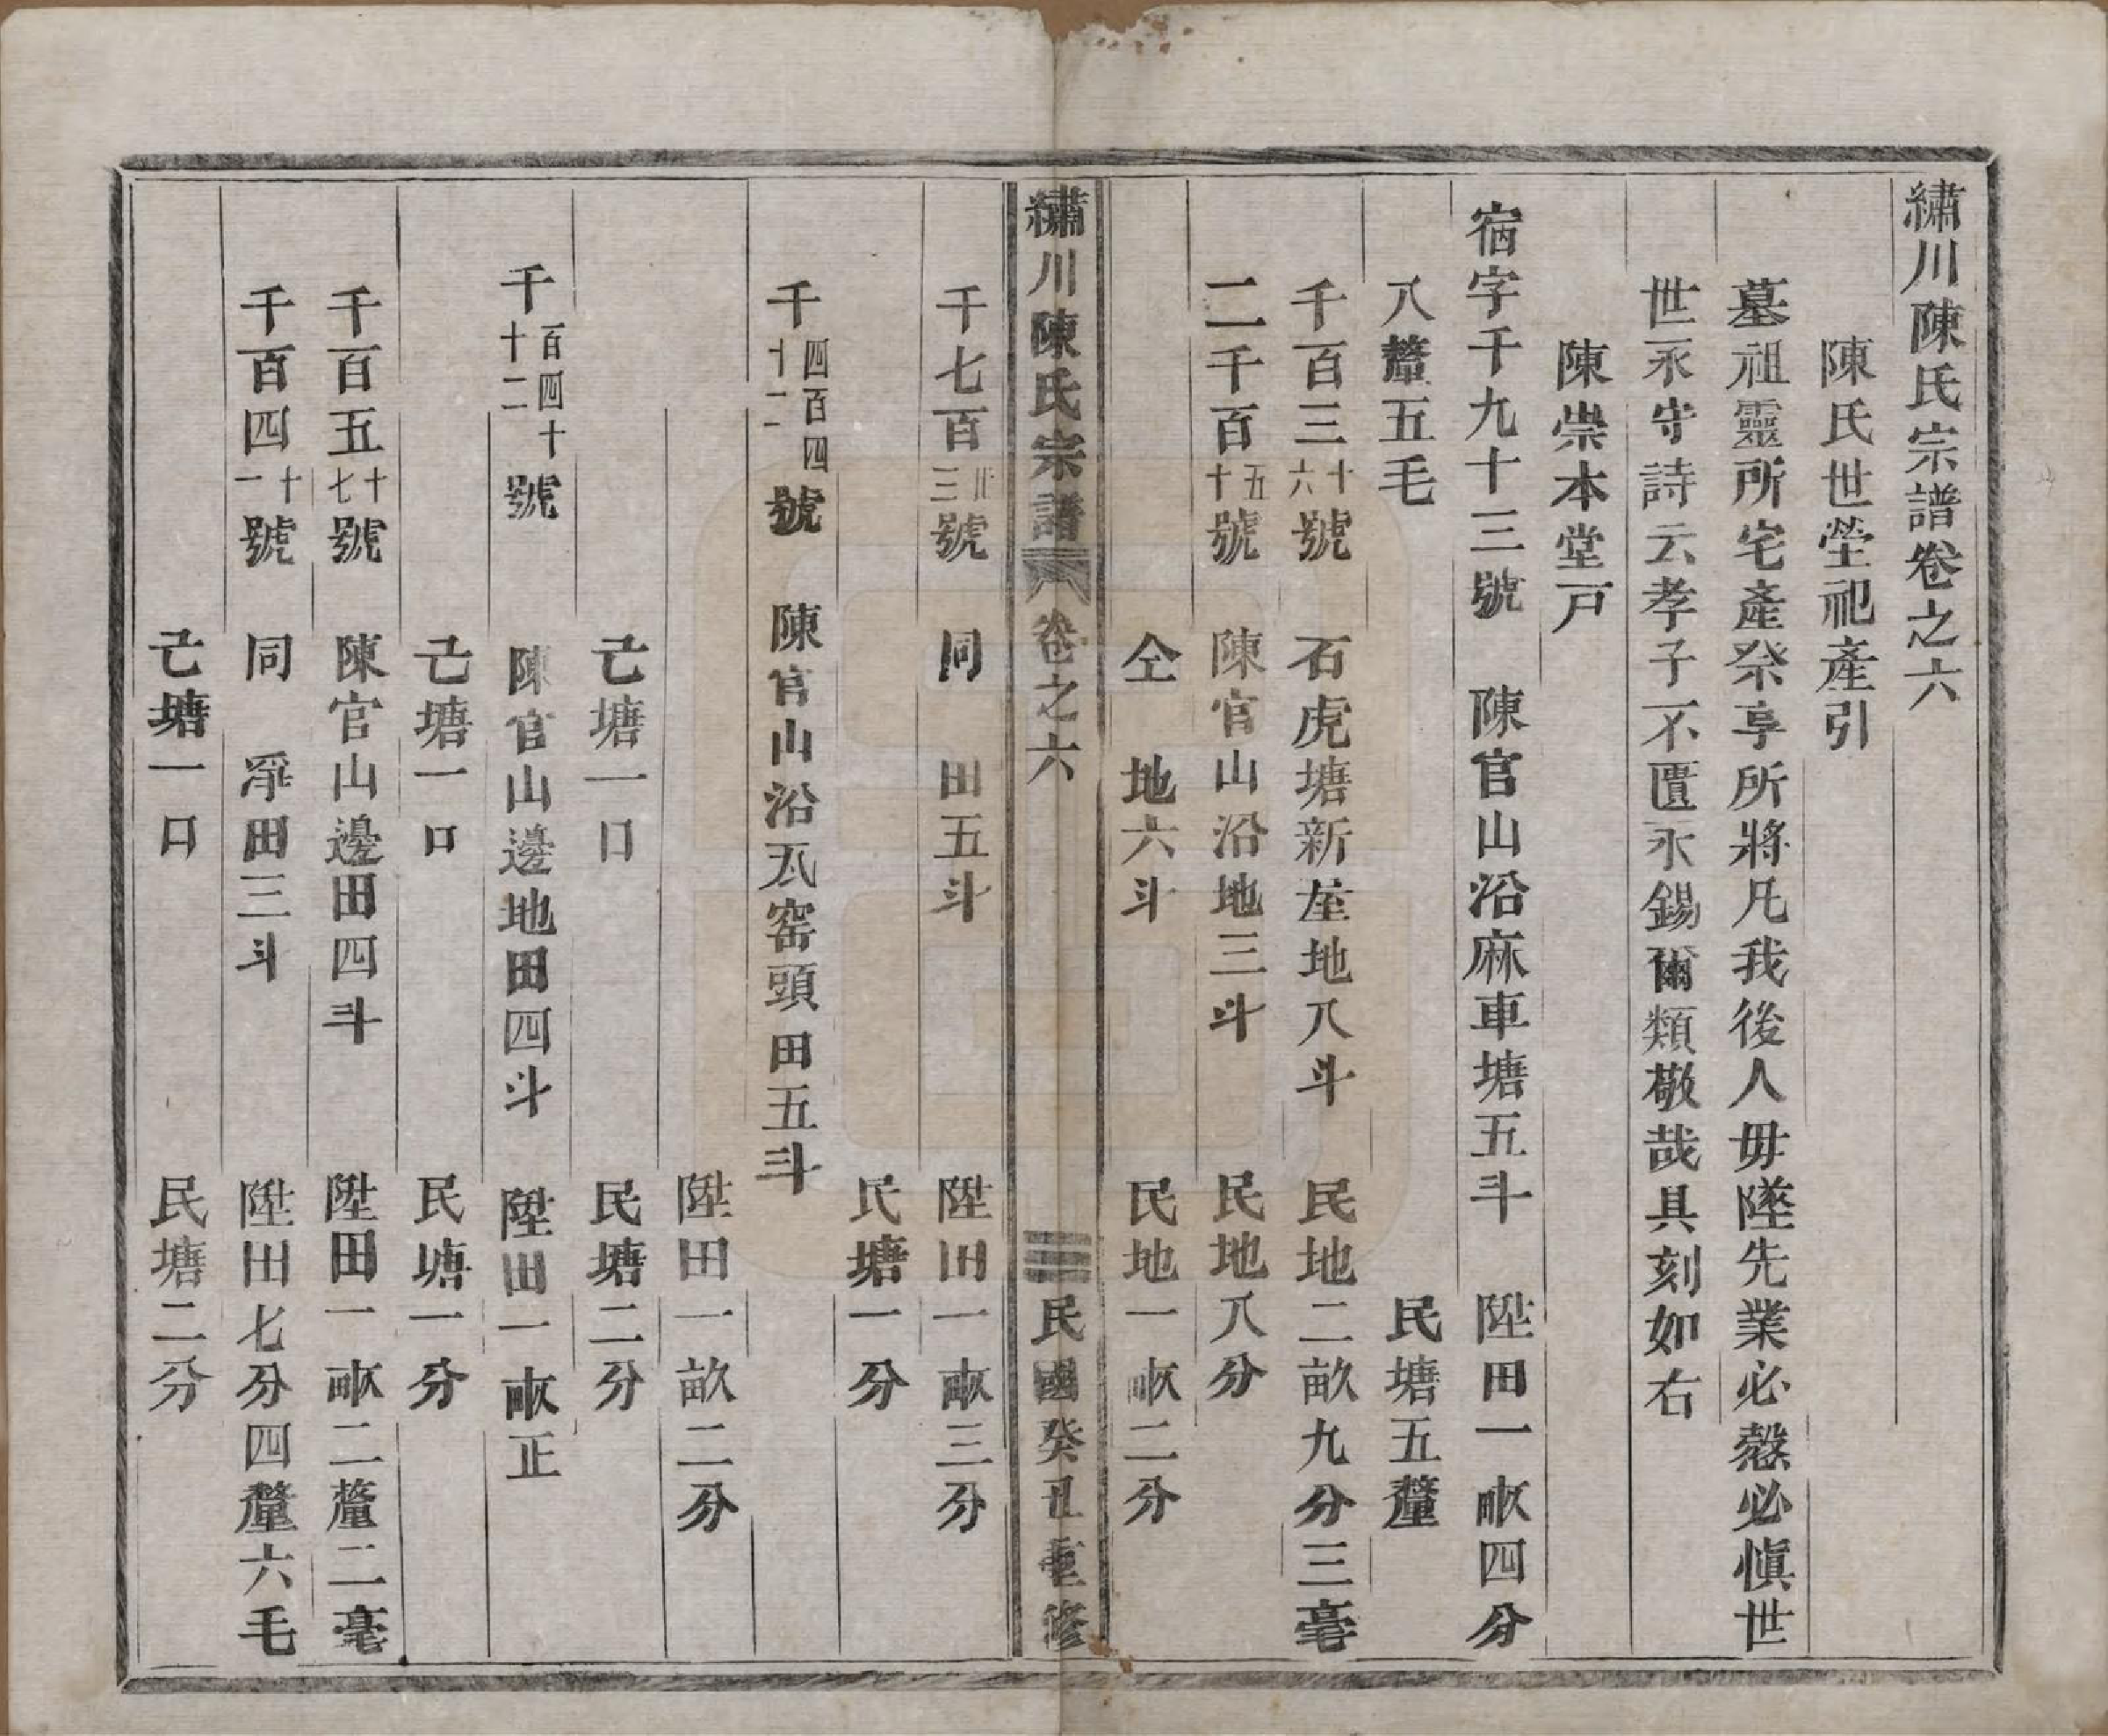 繡川陳氏宗譜卷之六
陳氏世塋祀產引
墓祖靈所宅產祭享所將凡我後人毋墜先業必慤必愼世
世永守詩云孝子不匱永錫爾類敬哉具刻如右
陳崇本堂戸
宿字千九十三號 陳官山沿麻車塘五斗 陞田一畝四分
八釐五毛 民塘五釐
千百三十六號 石虎塘新屋地八斗 民地二畝九分三毫
二千百五十號 陳官山沿地三斗 民地八分
仝 地六斗 民地一畝二分
繡川陳氏宗譜 卷之六 三 民國癸丑重修
千七百卅三號 同 田五斗 陞田一畝三分
民塘一分
千四百四十二號 陳官山沿瓦窰頭田五斗
陞田一畝二分
己塘一口 民塘二分
千百四十十二號 陳官山邊地田四斗 陞田一畝正
己塘一口 民塘一分
千百五十七號 陳官山邊田四斗 陞田一畝二釐二毫
千百四十一號 同 㘴田三斗 陞田七分四釐六毛
己塘一口 民塘二分